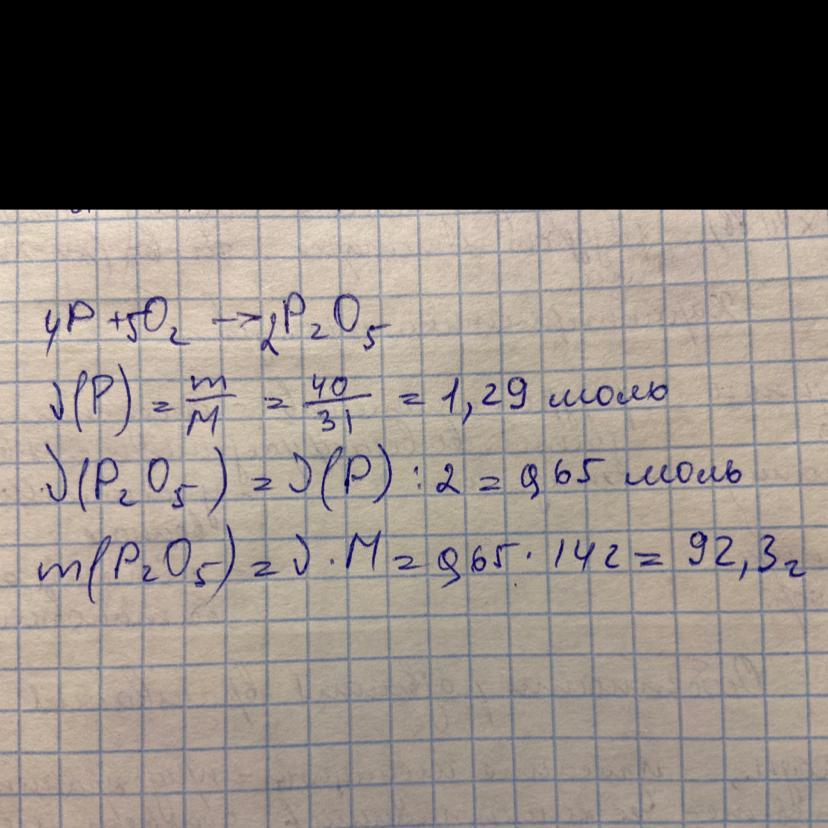 4P + 5O₂ → 2P₂O₅
ν(P) = m/M = 40/31 = 1,29 моль
ν(P₂O₅) = ν(P) : 2 = 0,65 моль
m(P₂O₅) = ν · M = 0,65 · 142 = 92,3 г